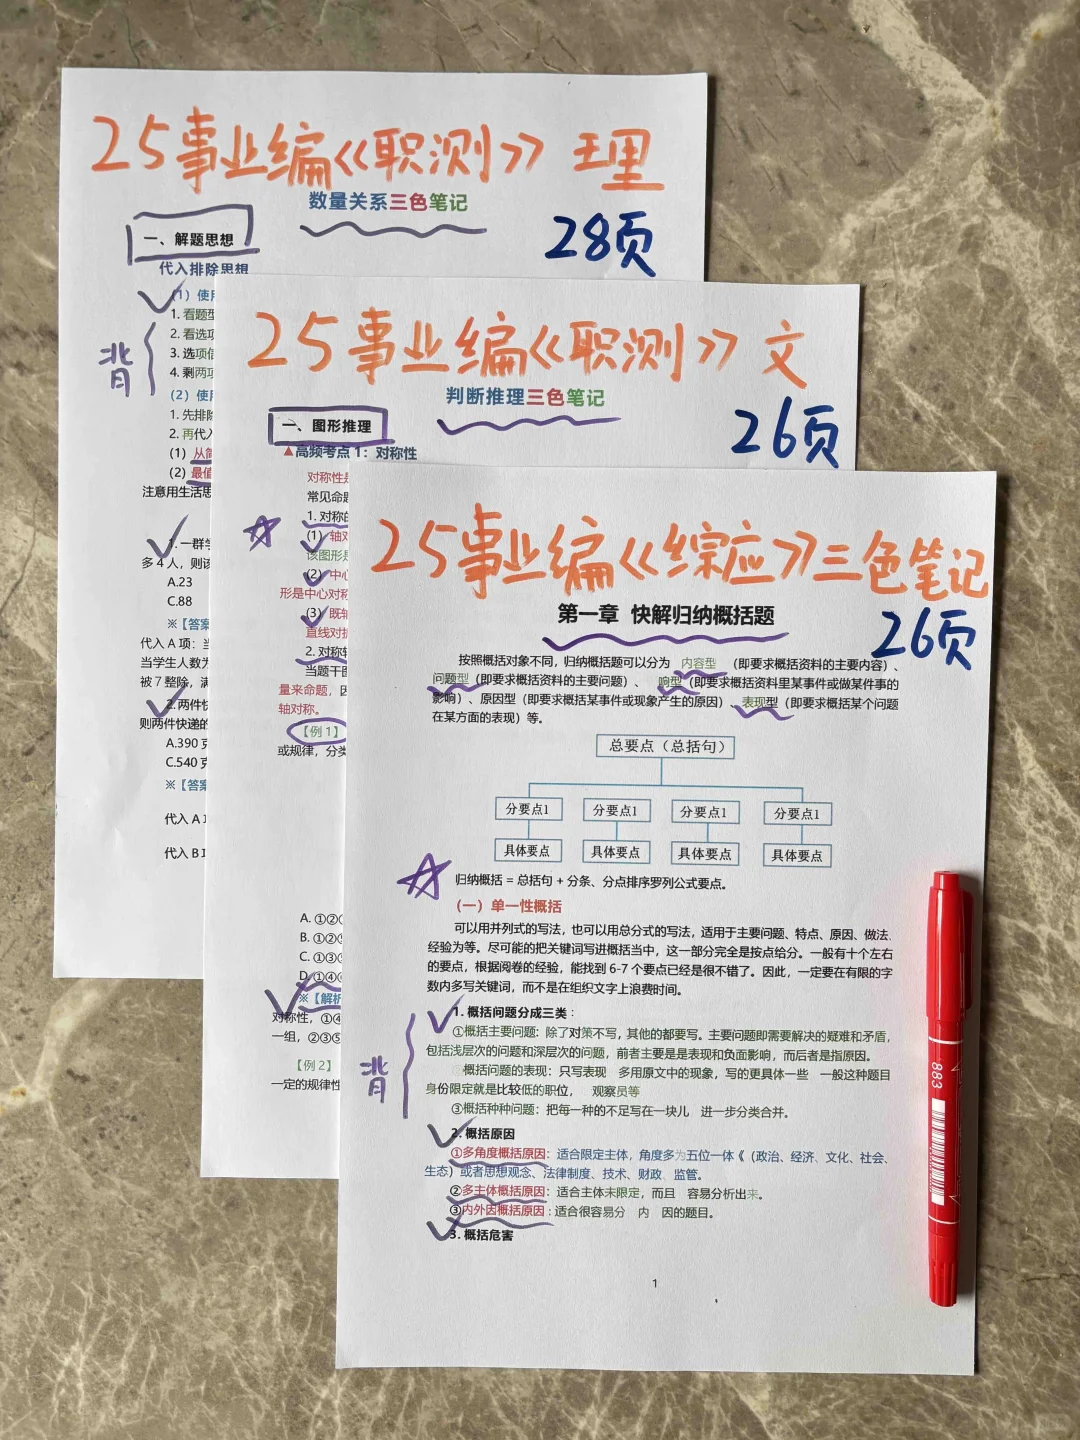 25事业编《职测》理
数量关系三色笔记
28页
一、解题思想
代入排除思想
(1)使用
1.看题型
2.看选项
背
3.选项信
4.剩两项
(2)使用
1.先排除
2.再代入
(1)从简
(2)最值
注意用生活思
1.一群学
多4人，则该
A.23
C.88
※【答案
代入A项：当
当学生人数为
被7整除，满
2.两件快
则两件快递的
A.390克
C.540克
※【答案
代入A项
代入B项
25事业编《职测》文
判断推理三色笔记
26页
一、图形推理
▲高频考点1：对称性
对称性是
常见命题
1.对称的
(1)轴对
该图形是
(2)中心
形是中心对称
(3)既轴
直线对折
2.对称轴
当题干图
量来命题，因
轴对称。
【例1】
或规律，分类
A.①②
B.①②
C.①③
D.①④
※【解析
对称性，①④
一组，②③⑤
【例2】
一定的规律性
25事业编《综应》三色笔记
26页
第一章 快解归纳概括题
按照概括对象不同，归纳概括题可以分为 内容型 （即要求概括资料的主要内容）、
问题型（即要求概括资料的主要问题）、 响型（即要求概括资料里某事件或做某件事的
影响）、原因型（即要求概括某事件或现象产生的原因）、表现型（即要求概括某个问题
在某方面的表现）等。
总要点（总括句）
分要点1 分要点1 分要点1 分要点1
具体要点 具体要点 具体要点 具体要点
归纳概括 = 总括句 + 分条、分点排序罗列公式要点。
（一）单一性概括
可以用并列式的写法，也可以用总分式的写法，适用于主要问题、特点、原因、做法、
经验为等。尽可能的把关键词写进概括当中，这一部分完全是按点给分。一般有十个左右
的要点，根据阅卷的经验，能找到 6-7 个要点已经是很不错了。因此，一定要在有限的字
数内多写关键词，而不是在组织文字上浪费时间。
1. 概括问题分成三类：
①概括主要问题：除了对策不写，其他的都要写。主要问题即需要解决的疑难和矛盾，
包括浅层次的问题和深层次的问题，前者主要是是表现和负面影响，而后者是指原因。
背
概括问题的表现：只写表现 多用原文中的现象，写的更具体一些 一般这种题目
身份限定就是比较低的职位， 观察员等
③概括种种问题：把每一种的不足写在一块儿 进一步分类合并。
2. 概括原因
①多角度概括原因：适合限定主体，角度多为五位一体《（政治、经济、文化、社会、
生态）或者思想观念、法律制度、技术、财政、监管。
②多主体概括原因：适合主体未限定，而且 容易分析出来。
③内外因概括原因：适合很容易分 内 因的题目。
3. 概括危害
1
883